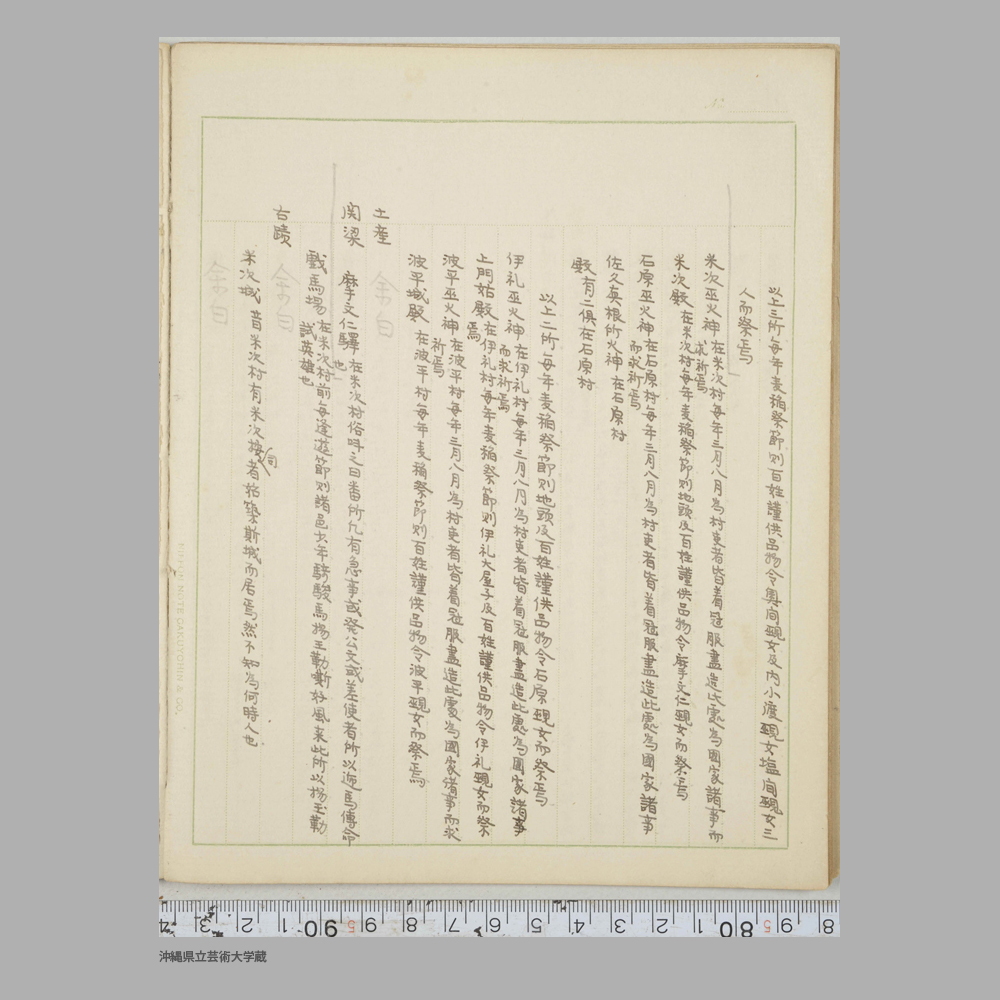 以上三所毎年麦稲祭節則百姓謹供品物令奥間覡女及内小渡覡女塩間覡女三
人而祭焉
米次巫火神 在米次村毎年三月八月為村吏者皆着冠服盡造此處為國家諸事而
求祈焉
米次殿 在米次村毎年麦稲祭節則地頭及百姓謹供品物令摩文仁覡女而祭焉
石原巫火神 在石原村毎年三月八月為村吏者皆着冠服盡造此處為國家諸事
而求祈焉
佐久真根所火神 在石原村
殿有二俱在石原村
以上二所毎年麦稲祭節則地頭及百姓謹供品物令石原覡女而祭焉
伊礼巫火神 在伊礼村毎年三月八月為村吏者皆着冠服盡造此處為國家諸事
而求祈焉
上門姑殿 在伊礼村毎年麦稲祭節則伊礼大屋子及百姓謹供品物令伊礼覡女而祭
焉
波平巫火神 在波平村毎年三月八月為村吏者皆着冠服盡造此處為國家諸事而求
祈焉
波平城殿 在波平村毎年麦稲祭節則百姓謹供品物令波平覡女而祭焉
土産 余白
関梁 摩文仁驛 在米次村俗呼之曰番所凡有急事或発公文或差使者所以迎馬傳命
也
戯馬場 在米次村前毎逢遊節則諸邑少年騎駿馬揚玉勒嘶好風来此所以揚玉勒
試英雄也
古蹟 余白
米次城 昔米次村有米次按司者始築斯城而居焉然不知為何時人也
余白
80
90
沖縄県立芸術大学蔵